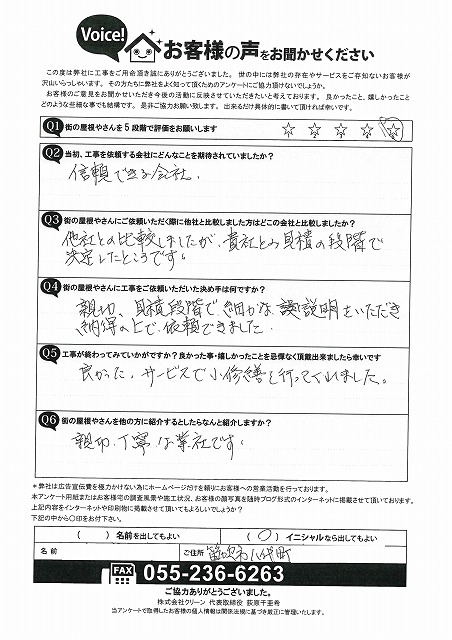 Voice!
お客様の声をお聞かせください
この度は弊社に工事をご用命頂き誠にありがとうございました。世の中には弊社の存在やサービスをご存知ないお客様が
沢山いらっしゃいます。その方たちに弊社をよく知って頂くためのアンケートにご協力頂けないでしょうか。
お客様のご意見をお聞かせいただき今後の活動に反映させていただきたいと考えております。良かったこと、嬉しかったこと
どのような些細な事でも結構です。是非ご協力お願い致します。出来るだけ具体的に書いて頂ければ幸いです。
Q1 街の屋根やさんを5段階で評価をお願いします ☆ ☆ ☆ ☆ ☆
Q2 当初、工事を依頼する会社にどんなことを期待されていましたか?
信頼できる会社.
Q3 街の屋根やさんにご依頼いただく際に他社と比較しました方はどこの会社と比較しましたか?
他社との比較しましたが、貴社との見積の段階で
決定したところです。
Q4 街の屋根やさんに工事をご依頼いただいた決め手は何ですか?
親切、見積段階で、細かな説明をいただき
納得の上で、依頼できました.
Q5 工事が終わってみていかがですか?良かった事・嬉しかったことを忌憚なく頂戴出来ましたら幸いです
良かった、サービスで小修繕を行ってくれました。
Q6 街の屋根やさんを他の方に紹介するとしたらなんと紹介しますか?
親切、丁寧な業社です。
＊弊社は広告宣伝費を極力かけない為にホームページだけを頼りにお客様への営業活動を行っております。
本アンケート用紙またはお客様宅の調査風景や施工状況、お客様の顔写真を随時ブログ形式のインターネットに掲載させて頂いております。
上記内容をインターネットや印刷物に掲載させて頂いてもよろしいでしょうか?
下記の中から○印をお付下さい。
( ) 名前を出してもよい ( ○ ) イニシャルなら出してもよい
名前 ご住所 笛吹市八代町
FAX 055-236-6263
ご協力ありがとうございました。
株式会社クリーン 代表取締役 荻原千亜希
当アンケートで取得したお客様の個人情報は関係法規に基づき厳正に管理いたします。